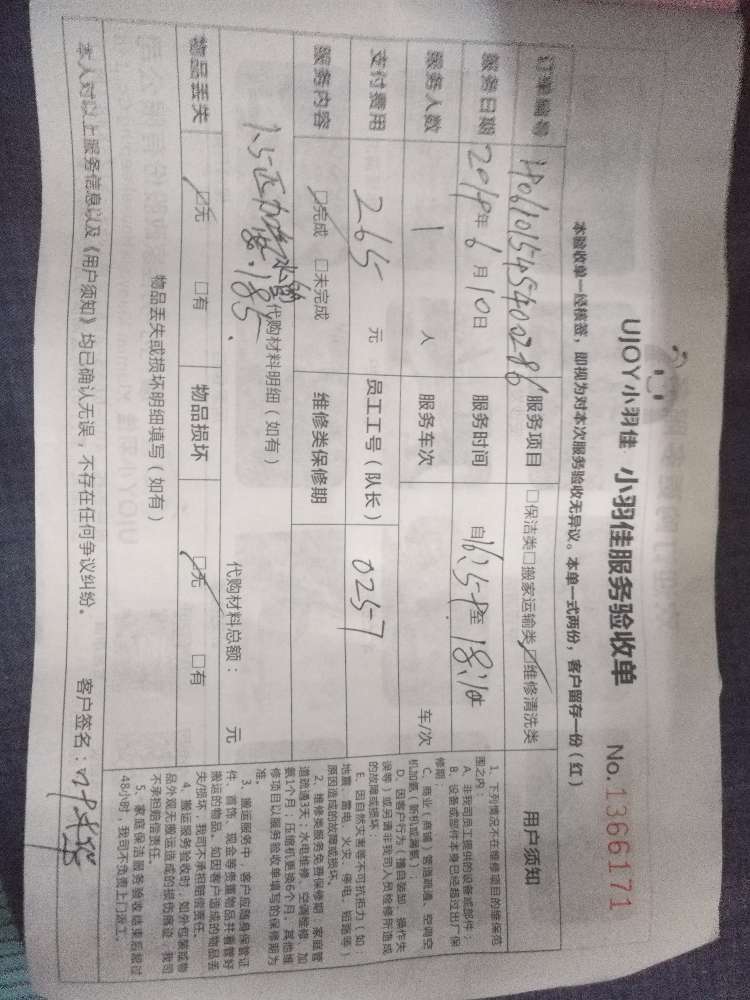 UJOY小羽佳 小羽佳服务验收单 No.1366171
本验收单一经核签，即视为对本次服务验收无异议。本单一式两份，客户留存一份（红）
订单编号 服务项目 □保洁类□搬家运输类☑维修清洗类
服务日期 2019年6月10日 服务时间 自16:54至18:10
服务人数 1 人 服务车次 车/次
支付费用 265 元 员工工号（队长） 0257
服务内容 ☑完成 □未完成 维修类保修期
代购材料明细（如有）
代购材料总额： 元
物品丢失 ☑无 □有 物品损坏 ☑无 □有
物品丢失或损坏明细填写（如有）
本人对以上服务信息以及《用户须知》均已确认无误，不存在任何争议纠纷。 客户签名：
用户须知
1、下列情况不在维修项目的维保范
围之内：
A、非我司员工提供的设备或部件；
B、设备或部件本身已经超过出厂保
修期；
C、商业（商铺）管道疏通、空调空
机加氨（新机或漏氨）；
D、因客户行为（擅自装卸、操作失
误等）或另请非我司人员检修所造成
的故障或损坏；
E、因自然灾害等不可抗拒力（如：
地震、雷电、火灾、停电、短路等）
原因造成的故障或损坏。
2、维修类服务免费保修期：家庭管
道疏通3天；水电维修、空调维修、加
氨1个月；压缩机更换6个月，其他维
修项目以服务验收单填写的保修期为
准。
3、搬运服务中，客户应随身保管证
件、首饰、现金等贵重物品并看管好
搬运的物品，如因客户造成的物品丢
失/损坏，我司不承担赔偿责任。
4、搬运服务验收时，如外包装或物
品外观无搬运造成的损伤痕迹，我司
不承担赔偿责任。
5、家庭保洁服务验收结束后超过
48小时，我司不负责上门返工